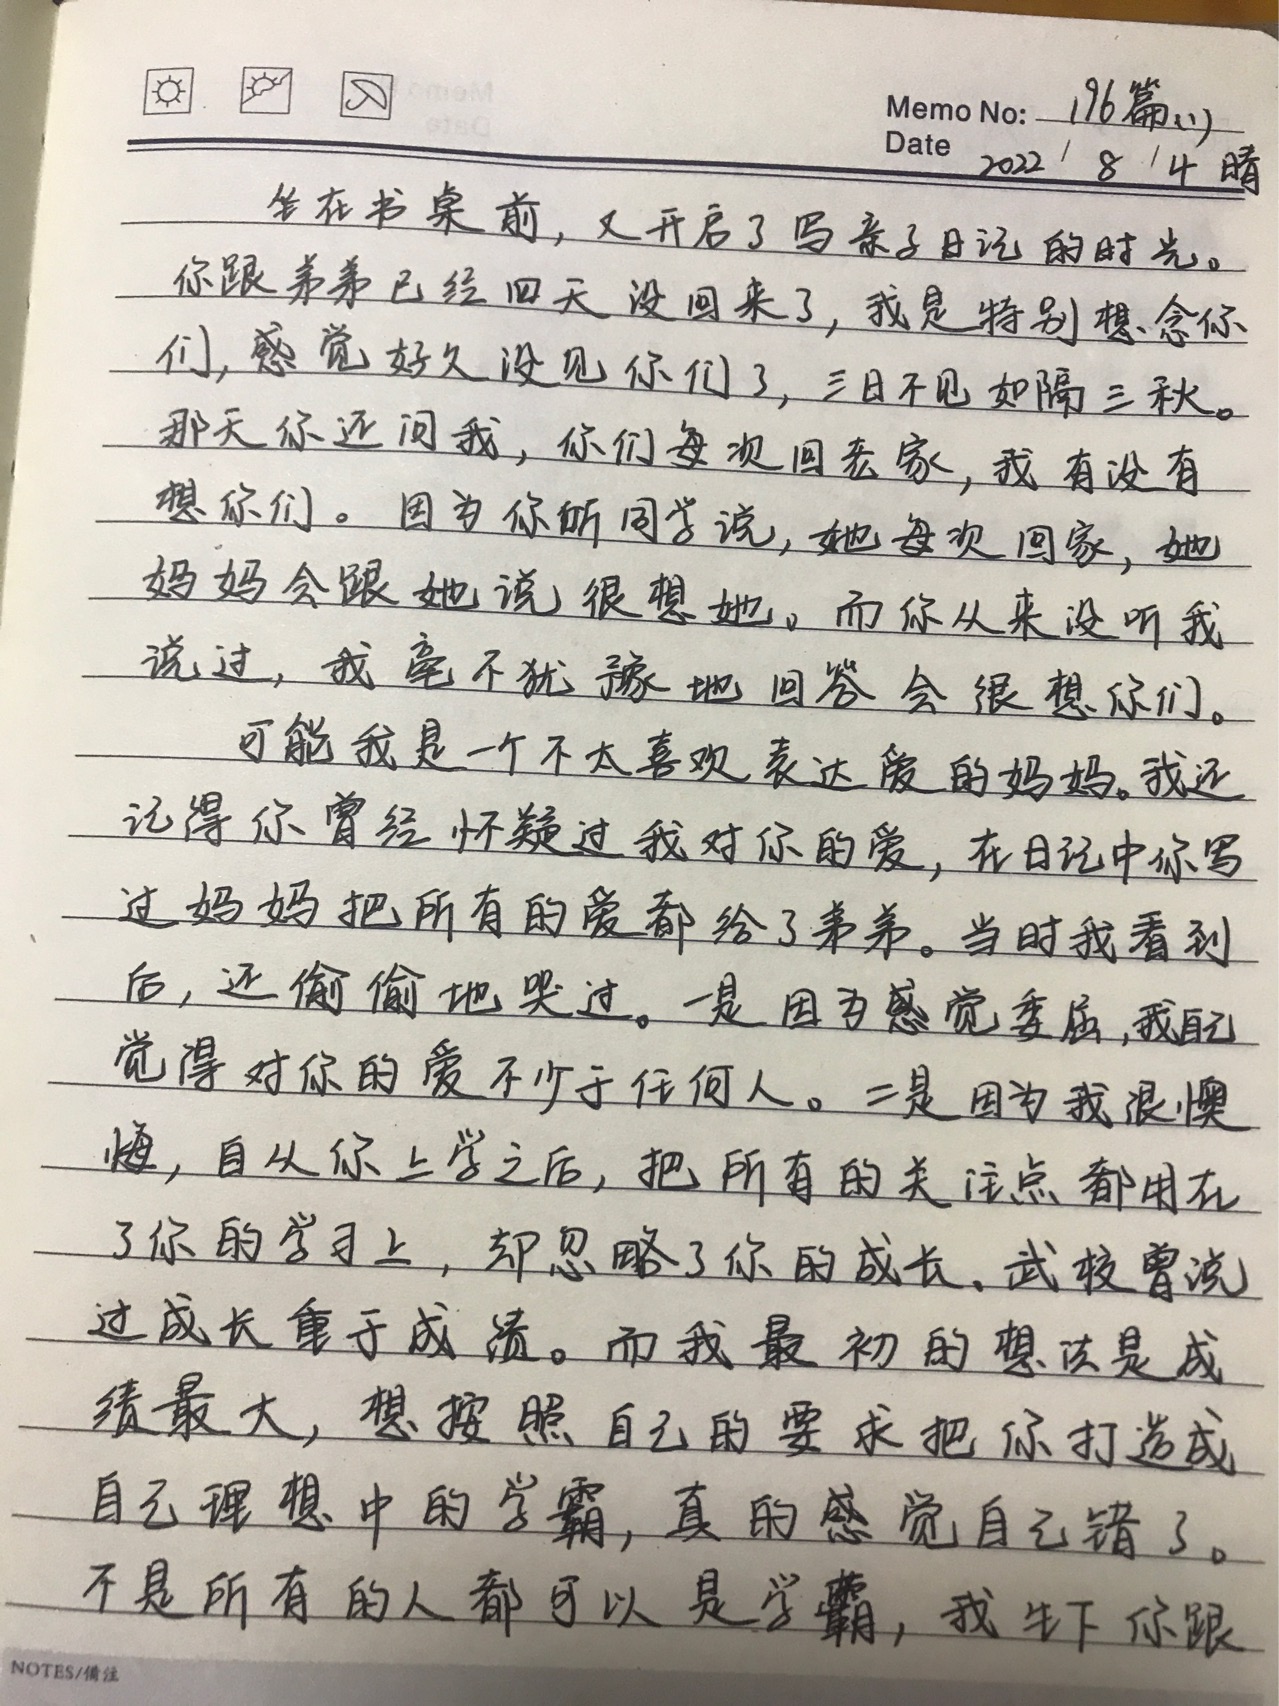 Memo No: 196篇(1)
Date 2022/8/4 晴
坐在书桌前,又开启了写亲子日记的时光。
你跟弟弟已经四天没回来了,我是特别想念你
们,感觉好久没见你们了,三日不见如隔三秋。
那天你还问我,你们每次回老家,我有没有
想你们。因为你听同学说,她每次回家,她
妈妈会跟她说很想她。而你从来没听我
说过,我毫不犹豫地回答会很想你们。
可能我是一个不太喜欢表达爱的妈妈。我还
记得你曾经怀疑过我对你的爱,在日记中你写
过妈妈把所有的爱都给了弟弟。当时我看到
后,还偷偷地哭过。一是因为感觉委屈,我自己
觉得对你的爱不少于任何人。二是因为我很懊
悔,自从你上学之后,把所有的关注点都用在
了你的学习上,却忽略了你的成长。武校曾说
过成长重于成绩。而我最初的想法是成
绩最大,想按照自己的要求把你打造成
自己理想中的学霸,真的感觉自己错了。
不是所有的人都可以是学霸,我生下你跟
NOTES/备注